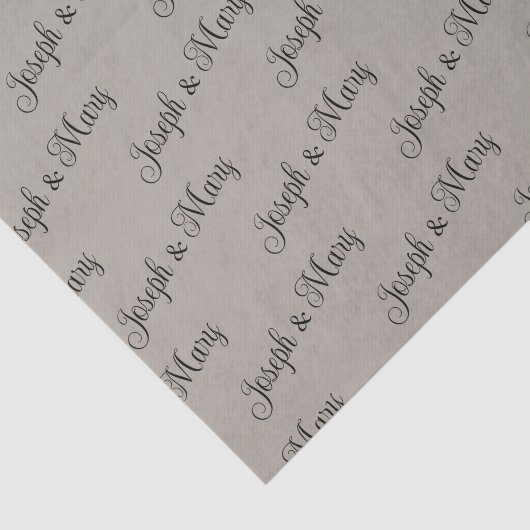 Joseph & Mary
Joseph & Mary
Joseph & Mary
Joseph & Mary
Joseph & Mary
Joseph & Mary
Joseph & Mary
Joseph & Mary
Joseph & Mary
Mary
Mary
Mary